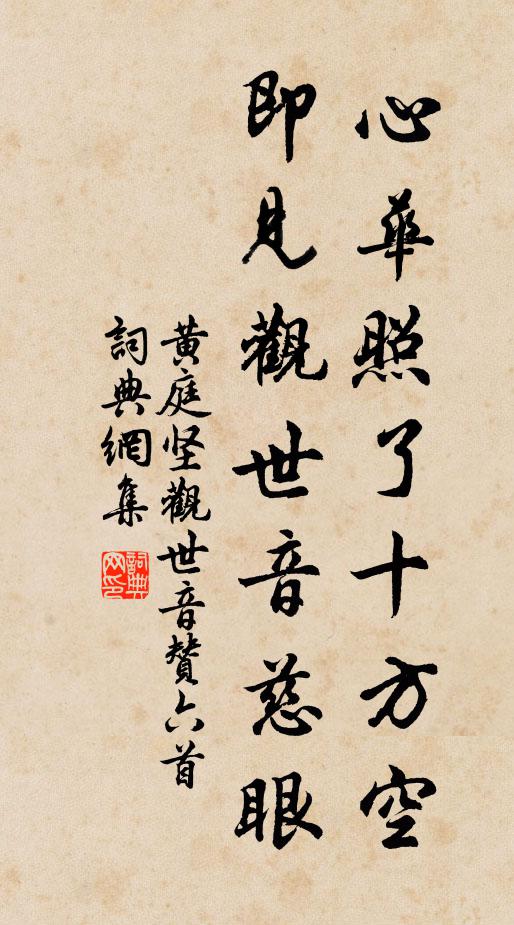 心華照了十方空
即見觀世音慈眼
黃庭坚觀世音贊六首
詞典網集
詞典网印